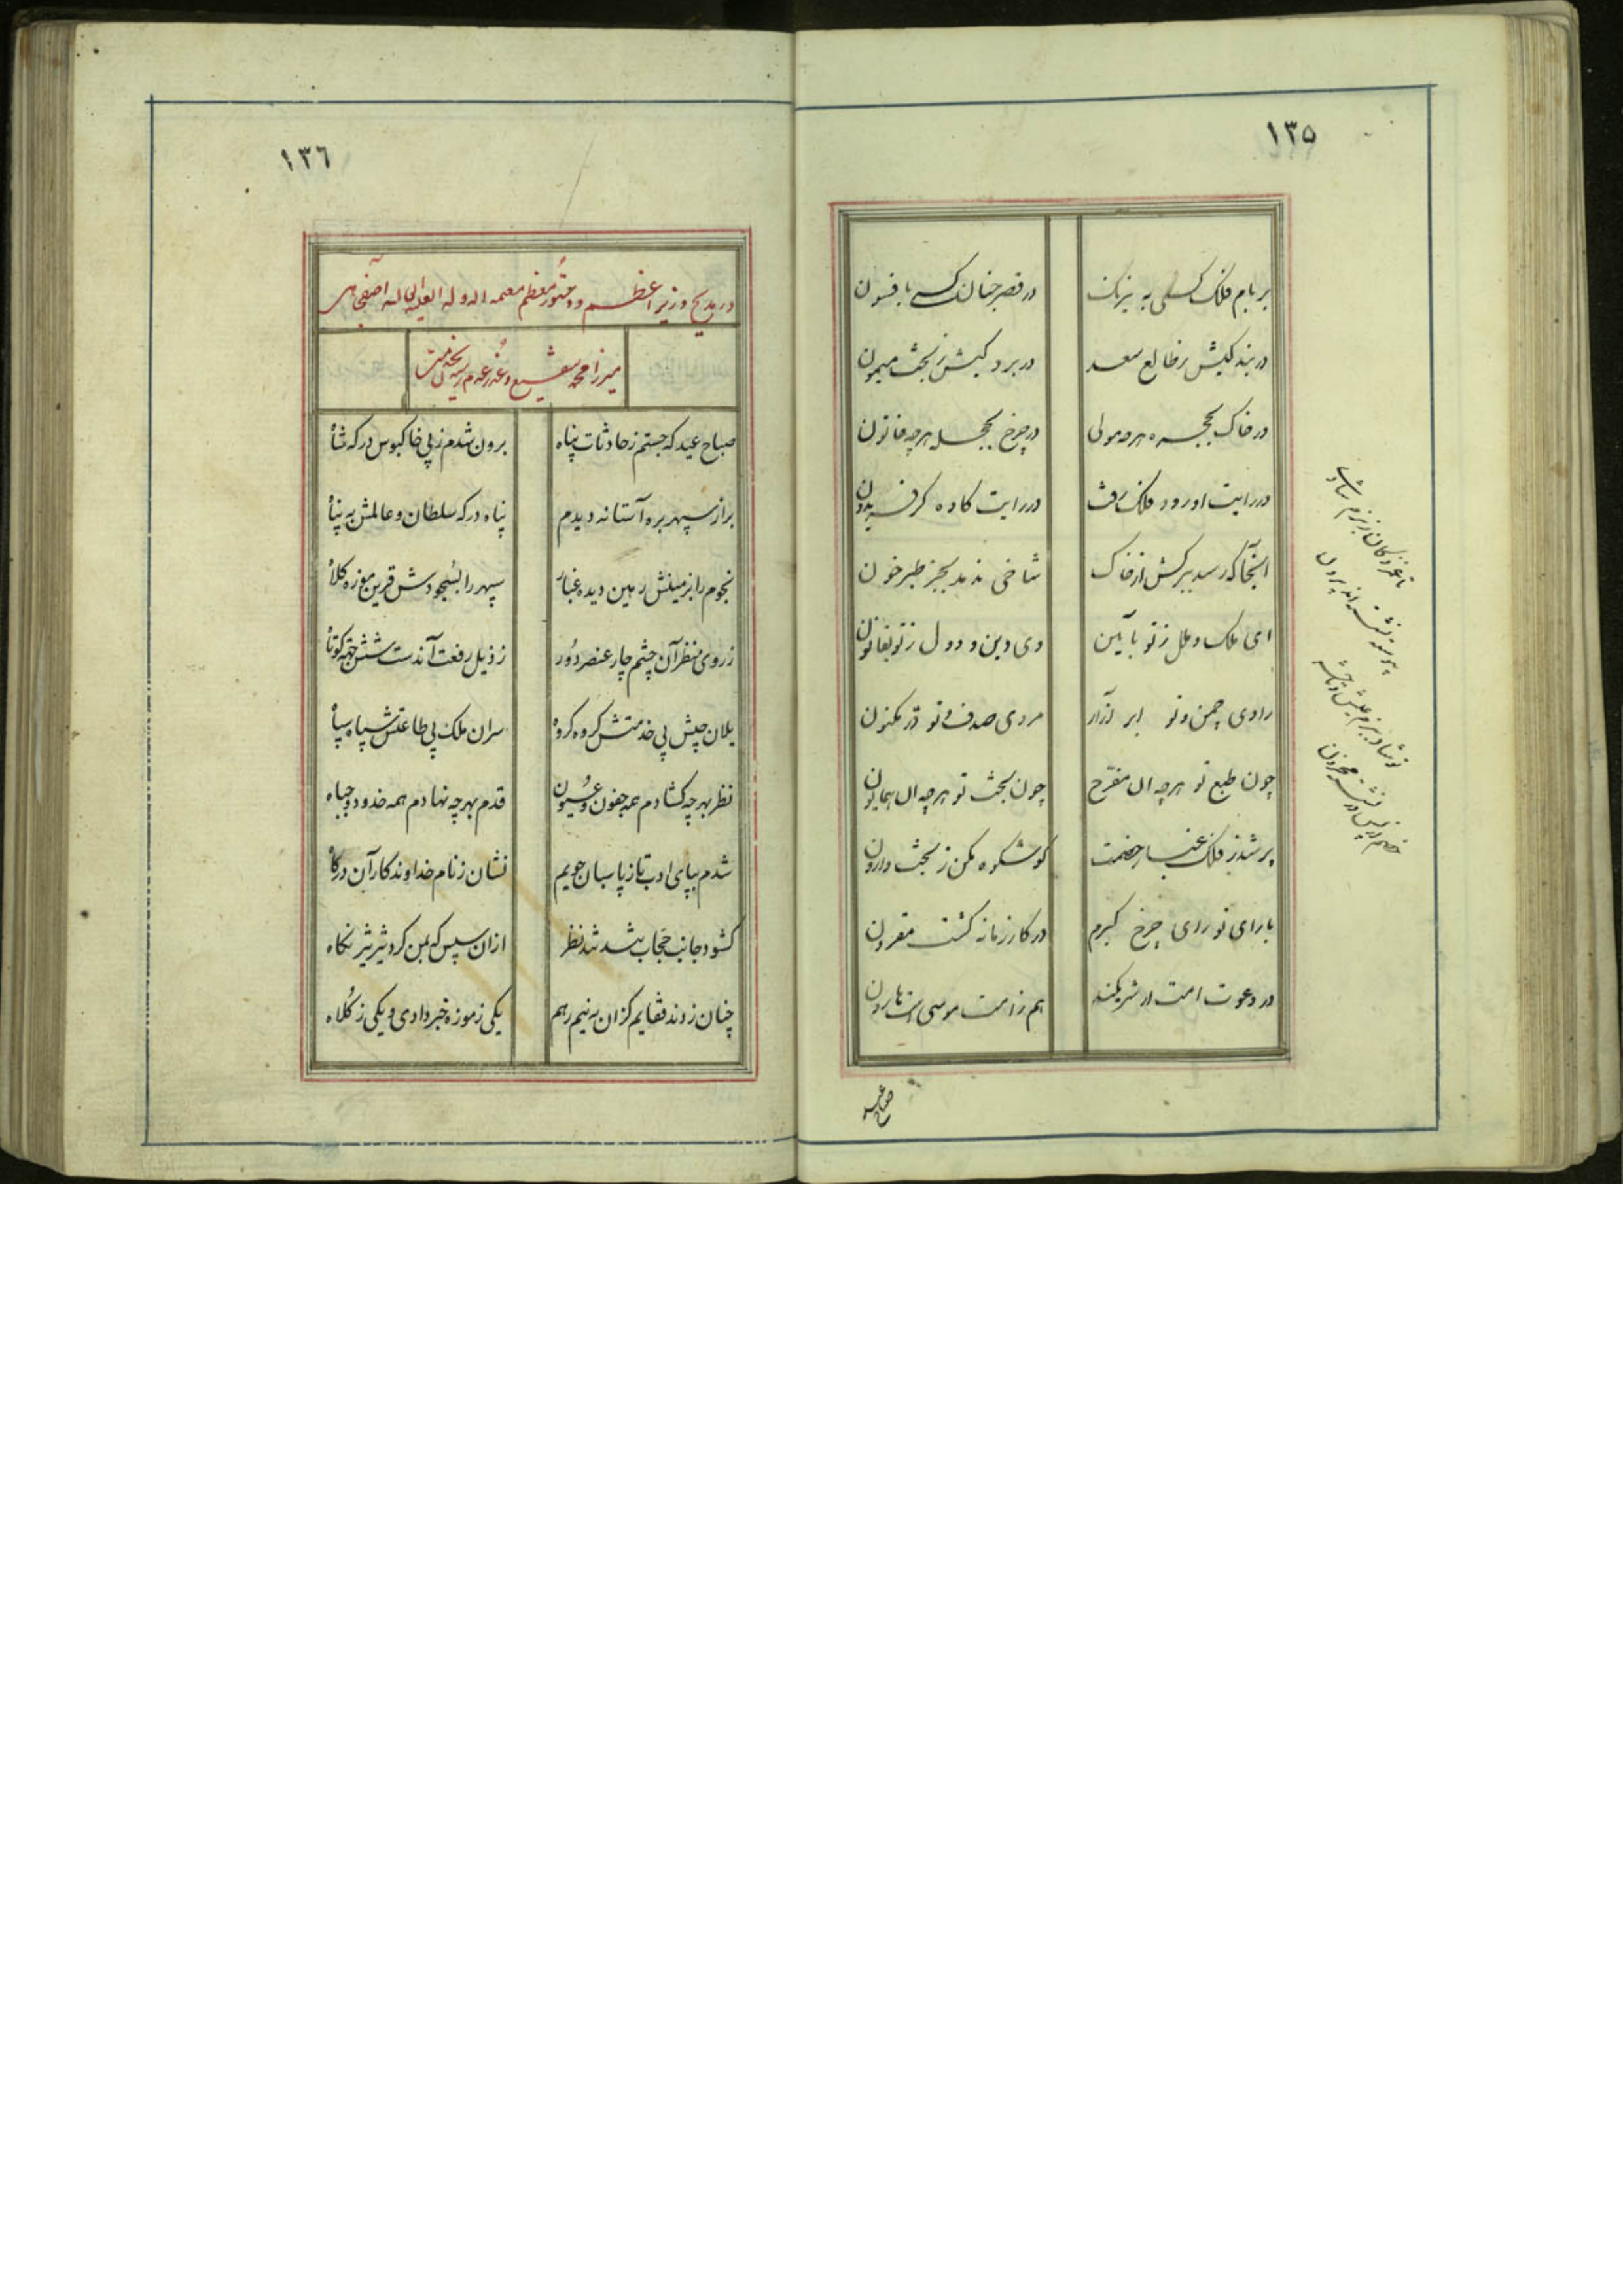 ١٣٥
بر بام فلک کسی به نیرنک در قصر جنان کسی بافسون
در بندکیش ز طالع سعد در بردکیش ز بخت میمون
در خاک بحجره هر چه مولی در چرخ بحجله هر چه خاتون
در رایت او رود فلک رفت در رایت کاوه کر فریدون
آنجا که رسد ببرکش از خاک شاخی ندمد بجز طبرخون
ای ملک و ملل ز تو بآیین وی دین و دول ز تو بقانون
رادی چمن و تو ابر آزار مردی صدف و تو در مکنون
چون طبع تو هر چه آن مفرح چون بخت تو هر چه آن همایون
پر شد ز فلک خصمت کو شکوه مکن ز بخت وارون
با رای تو رای چرخ کیرم در کار زمانه کشت مقرون
در دعوت امت ار شریکند هم ز امت موسی است هارون
صباح عید
١٣٦
در مدیح وزیر اعظم و دستور معظم معتمد الدوله
میرزا محمد شفیع و
صباح عید که جستم ز حادثات پناه برون شدم ز پی خاکبوس درکه شاه
براز سپهر بره آستانه دیدم پناه درکه سلطان و عالمش به پناه
نجوم را بزمینش رهین دیده غبار سپهر را بسجودش قرین موزه کلاه
ز روی منظر آن چشم چار عنصر دور ز ذیل رفعت آن دست شش جهة کوتاه
یلان چپش پی خدمتش کروه کروه سران ملک پی طاعتش سپاه سپاه
نظر بهر چه کشادم همه جفون و عیون قدم بهر چه نهادم همه خدود و جباه
شدم بپای ادب تا ز پاسبان جویم نشان ز نام خداوندکار آن درکاه
کشود جانب حجاب شد نظر ازان سپس که بمن کرد شیر شیر نکاه
چنان زدند قفایم کزان به نیم رهم یکی ز موزه خبر دادی و یکی ز کلاه